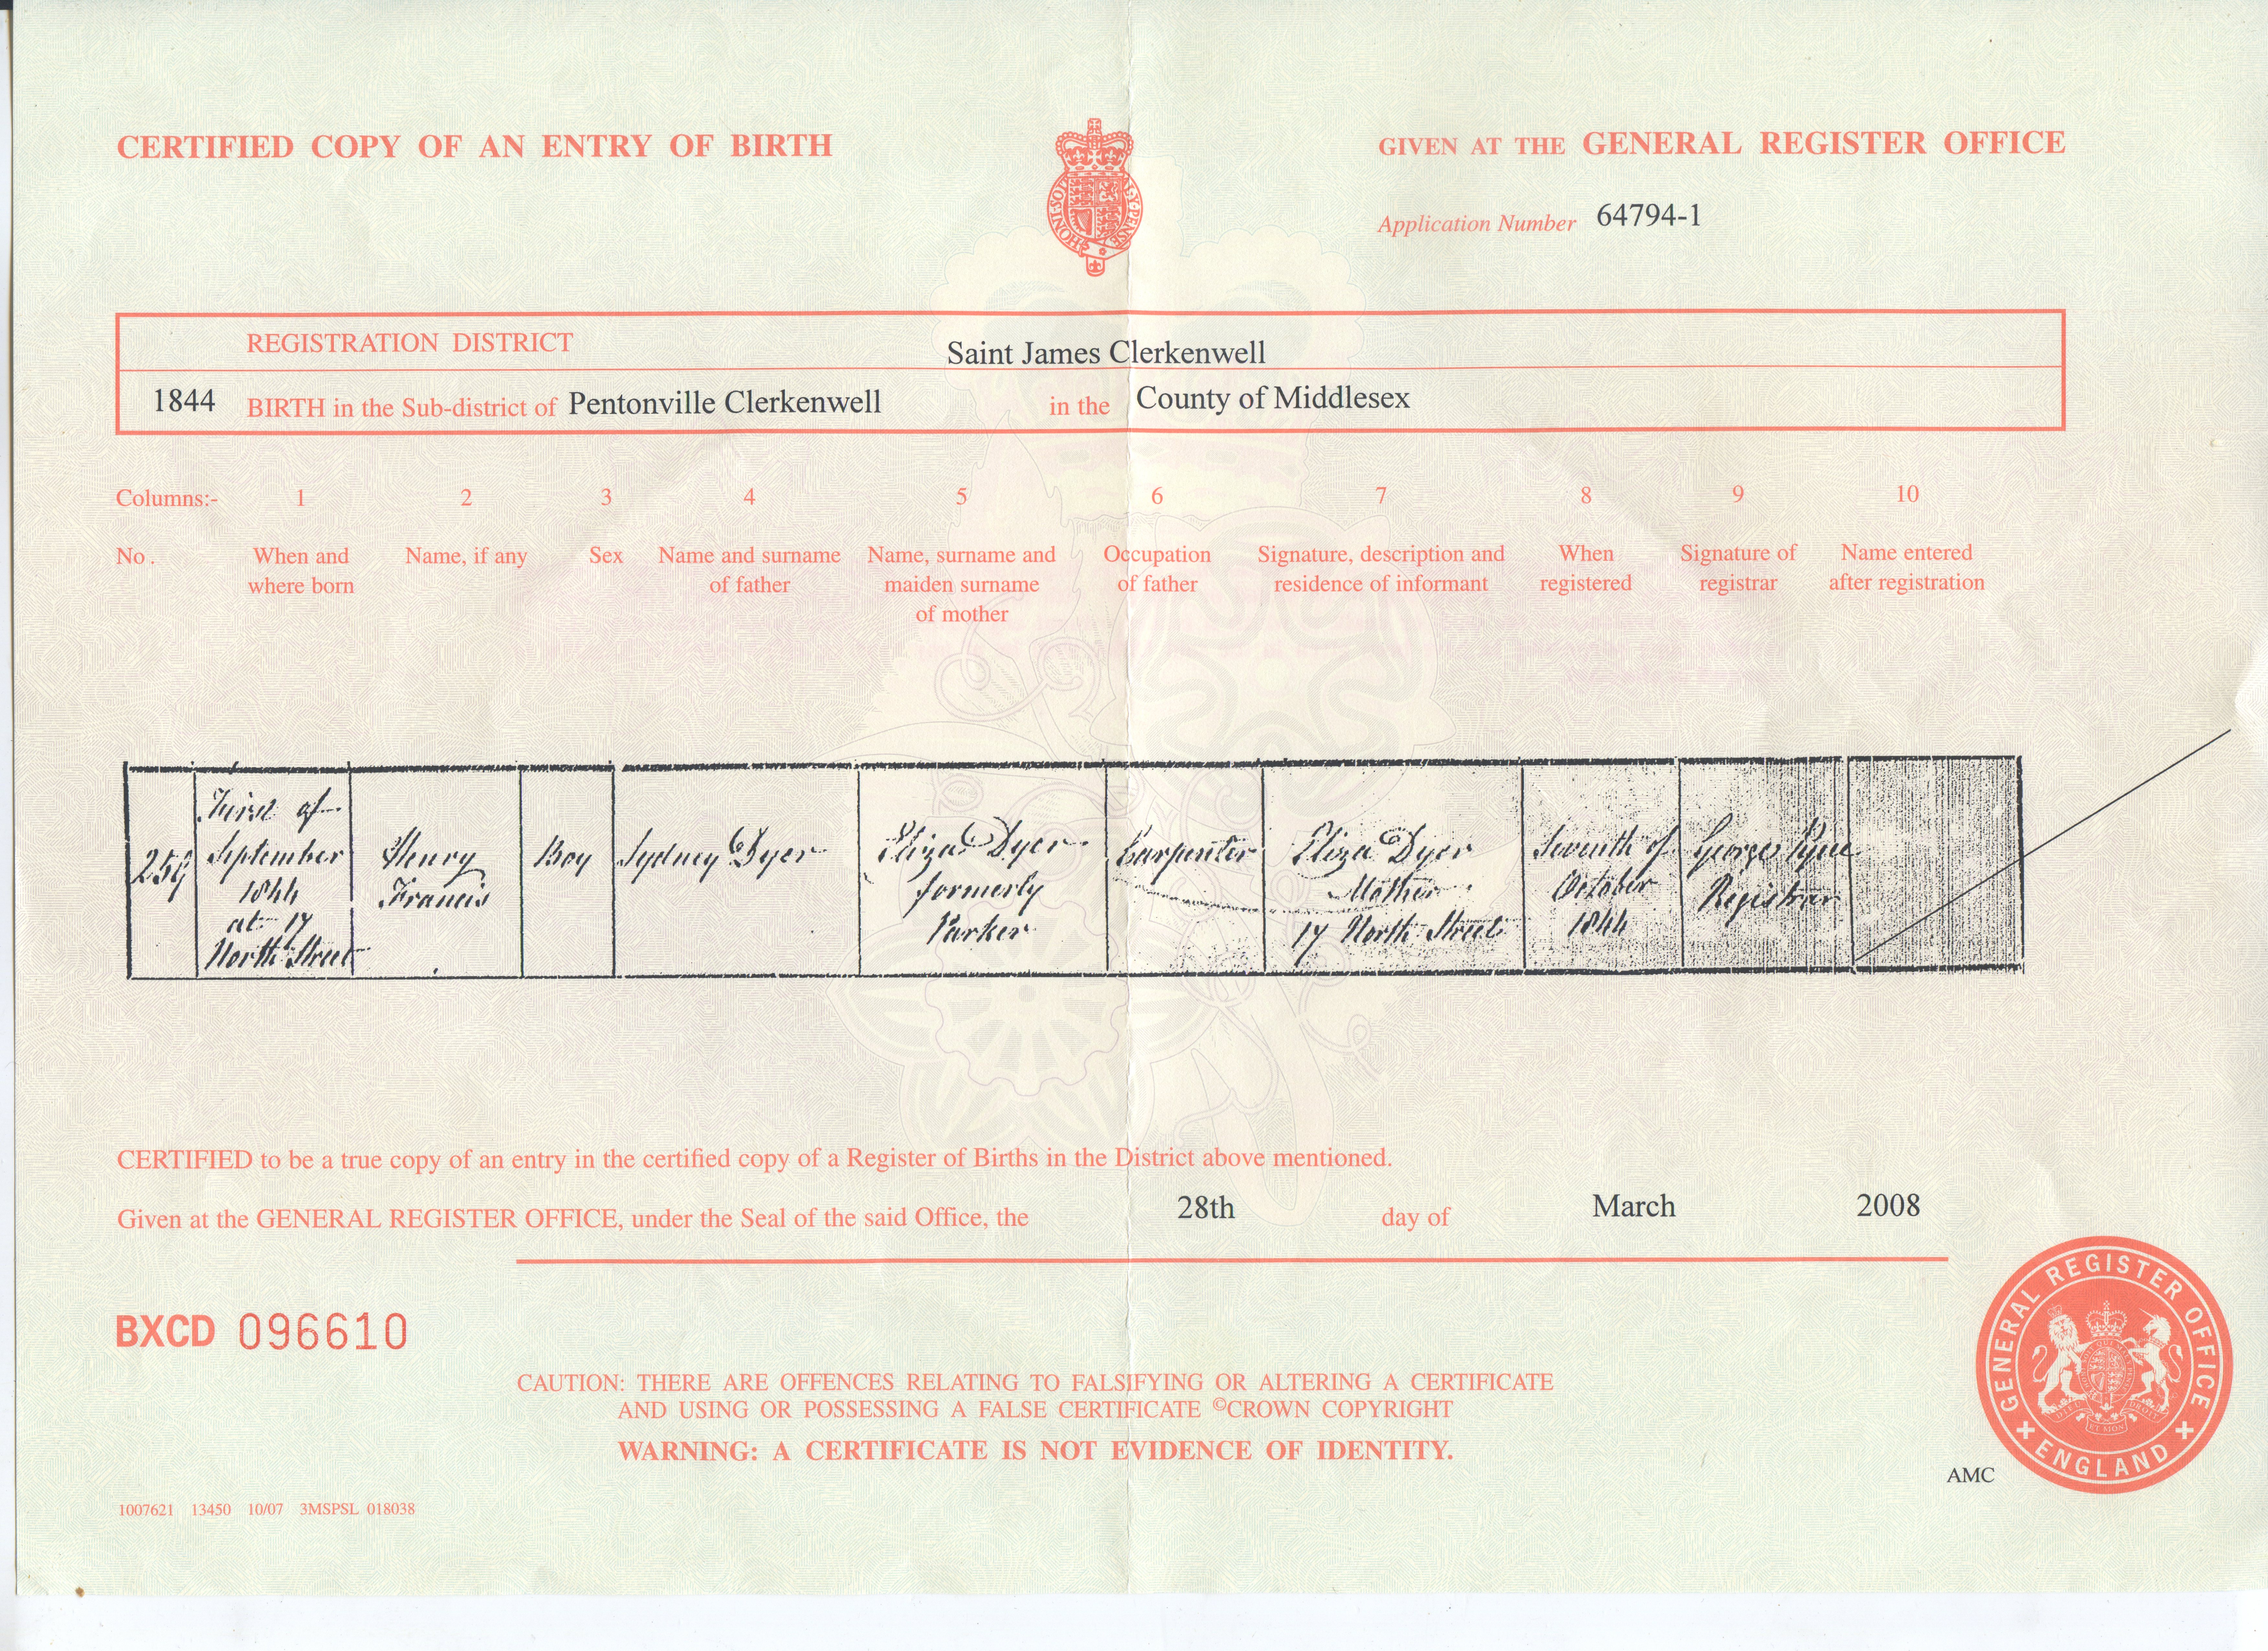 CERTIFIED COPY OF AN ENTRY OF BIRTH
GIVEN AT THE GENERAL REGISTER OFFICE
HONI·SOIT
Y·PENSE
Application Number 64794-1
REGISTRATION DISTRICT Saint James Clerkenwell
1844 BIRTH in the Sub-district of Pentonville Clerkenwell in the County of Middlesex
Columns:- 1 2 3 4 5 6 7 8 9 10
No. When and Name, if any Sex Name and surname Name, surname and Occupation Signature, description and When Signature of Name entered
where born of father maiden surname of father residence of informant registered registrar after registration
of mother
First of
September
1844
at 17
North Street
Henry
Francis
Boy
Sydney Dyer
Eliza Dyer
formerly
Parker
Carpenter
Eliza Dyer
Mother
17 North Street
Seventh of
October
1844
George
Registrar
CERTIFIED to be a true copy of an entry in the certified copy of a Register of Births in the District above mentioned.
Given at the GENERAL REGISTER OFFICE, under the Seal of the said Office, the 28th day of March 2008
BXCD 096610
CAUTION: THERE ARE OFFENCES RELATING TO FALSIFYING OR ALTERING A CERTIFICATE
AND USING OR POSSESSING A FALSE CERTIFICATE ©CROWN COPYRIGHT
WARNING: A CERTIFICATE IS NOT EVIDENCE OF IDENTITY.
GENERAL REGISTER OFFICE
ENGLAND
AMC
1007621 13450 10/07 3MSPSL 018038